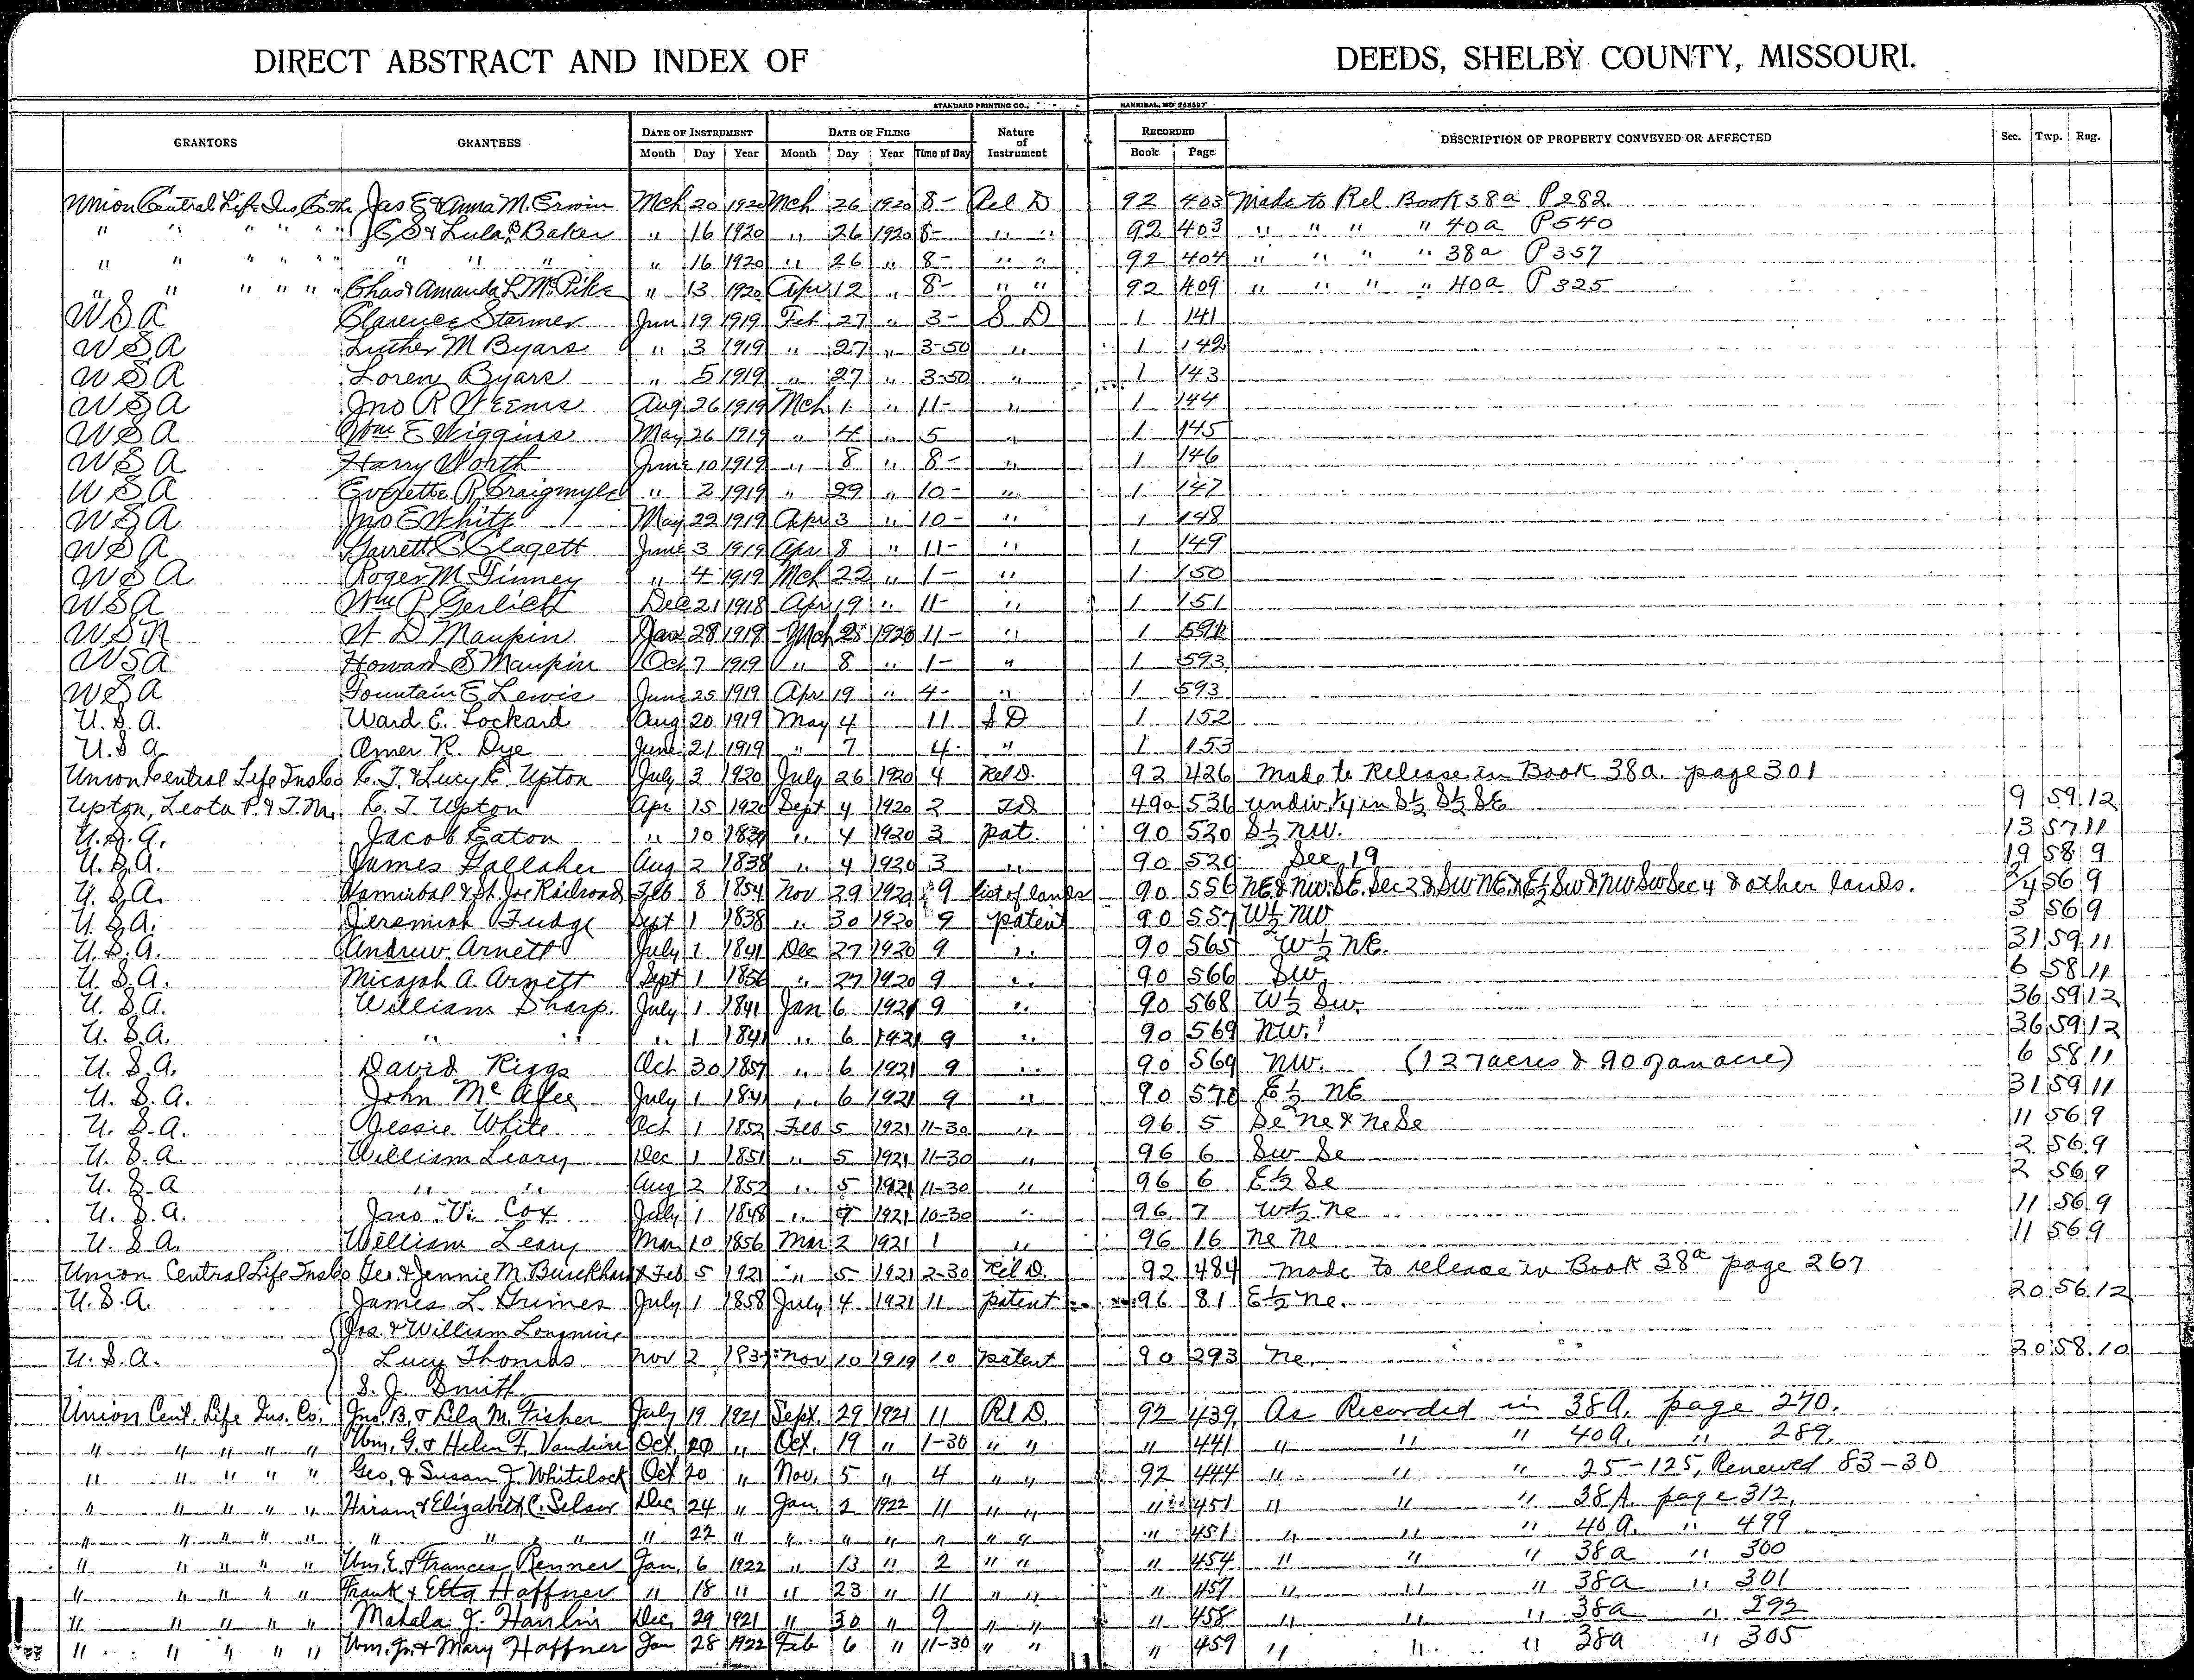 DIRECT ABSTRACT AND INDEX OF DEEDS, SHELBY COUNTY, MISSOURI.
STANDARD PRINTING CO., HANNIBAL, MO
GRANTORS GRANTEES DATE OF INSTRUMENT DATE OF FILING Nature of Instrument RECORDED DESCRIPTION OF PROPERTY CONVEYED OR AFFECTED Sec. Twp. Rng.
Month Day Year Month Day Year Time of Day Book Page
Union Central Life Ins Co The Jas E & Anna M. Erwin Mch 20 1920 Mch 26 1920 8- Rel D 92 403 Made to Rel Book 38a P282
" " " " " " C S & Lula B Baker " 16 1920 " 26 1920 8- " " 92 403 " " " " 40a P540
" " " " " " " " " " 16 1920 " 26 " 8- " " 92 404 " " " " 38a P357
" " " " " " Chas & Amanda L McPike " 13 1920 Apr 12 " 8- " " 92 409 " " " " 40a P325
U S A Clarence Starmer Jun 19 1919 Feb 27 " 3- S D 1 141
U S A Luther M Byars " 3 1919 " 27 " 3-50 " 1 142
U S A Loren Byars " 5 1919 " 27 " 3-50 " 1 143
U S A Jno R Weems Aug 26 1919 Mch 1 " 11- " 1 144
U S A Wm E Wiggins May 26 1919 " 4 " 5 " 1 145
U S A Harry Worth June 10 1919 " 8 " 8- " 1 146
U S A Everette R Craigmyle " 2 1919 " 29 " 10- " 1 147
U S A Jno E White May 22 1919 Apr 3 " 10- " 1 148
U S A Garrett C Clagett June 3 1919 Apr 8 " 11- " 1 149
U S A Roger M Finney " 4 1919 Mch 22 " 1- " 1 150
U S A Wm P Gerlich Dec 21 1918 Apr 19 " 11- " 1 151
U S A D Maupin Jan 28 1919 Mch 25 1920 11- " 1
U S A Howard S Maupin Oct 7 1919 " 8 " 1- " 1 593
U S A Fountain E Lewis June 25 1919 Apr 19 " 4- " 1 593
U. S. A. Ward E. Lockard Aug 20 1919 May 4 11 S D 1 152
U. S a Omer R. Dye June 21 1919 " 7 4 " 1 153
Union Central Life Ins Co C. T. & Lucy E. Upton July 2 1920 July 26 1920 4 Rel D. 92 426 Made to Release in Book 38a. page 301
Upton, Leota P. & T. Na. C. T. Upton Apr 15 1920 Sept 4 1920 2 49a 536 undiv 1/4 in S½ S½ SE 9 59 12
U. S. A. Jacob Eaton " 10 " 4 1920 3 pat. 90 520 S½ NW. 13 57 11
U. S. A. James Gallaher Aug 2 1838 " 4 1920 3 " 90 520 Sec 19 19 58 9
U. S. A. Hannibal & St. Joe Railroad Feb 8 1854 Nov 29 1920 9 list of lands 90 556 NE & NW. SE. Sec 2 & SW NE & E½ SW & NW SW Sec 4 & other lands. 2/4 56 9
U. S. A. Jeremiah Fudge Sept 1 1838 " 30 1920 9 patent 90 557 W½ NW 3 56 9
U. S. A. Andrew Arnett July 1 1841 Dec 27 1920 9 " 90 565 W½ NE. 31 59 11
U. S. A. Micajah A. Arnett Sept 1 1856 " 27 1920 9 " 90 566 SW 6 58 11
U. S. A. William Sharp. July 1 1841 Jan 6 1921 9 " 90 568 W½ SW. 36 59 12
U. S. A. " " " 1 1841 " 6 1921 9 " 90 569 NW. 36 59 12
U. S. A. David Riggs Oct 30 1857 " 6 1921 9 " 90 569 NW. (127 acres & .90 of an acre) 6 58 11
U. S. A. John McAfee July 1 1841 " 6 1921 9 " 90 570 E½ NE 31 59 11
U. S. A. Jessie White Oct 1 1852 Feb 5 1921 11-30 " 96 5 Se Ne & Ne Se 11 56 9
U. S. A. William Leary Dec 1 1851 " 5 1921 11-30 " 96 6 Sw Se 2 56 9
U. S. A " " Aug 2 1852 " 5 1921 11-30 " 96 6 E½ Se 2 56 9
U. S. A. Jno. V. Cox July 1 1848 " 1921 10-30 " 96 7 W½ Ne 11 56 9
U. S. A. William Leary Mar 10 1856 Mar 2 1921 1 " 96 16 Ne Ne 11 56 9
Union Central Life Ins Co Geo & Jennie M. Burckhart Feb 5 1921 " 5 1921 2-30 Rel D. 92 484 Made to release in Book 38a page 267
U. S. A. James L. Grimes July 1 1858 July 4 1921 11 patent 96 81 E½ Ne. 20 56 12
Jos. & William Longmire
U. S. A. Lucy Thomas Nov 2 Nov 10 1919 10 patent 90 293 Ne. 20 58 10
S. J. Smith
Union Cent. Life Ins. Co. Jno. B. & Lila M. Fisher July 19 1921 Sept. 29 1921 11 Rl D. 92 439 As Recorded in 38A. page 270.
" " " " " Wm. G. & Helen F. Vandiver Oct. 20 " Oct. 19 " 1-30 " " " 441 " " " 40A. " 289.
" " " " " Geo. & Susan J. Whitelock Oct 20 " Nov. 5 " 4 " " 92 444 " " " 25-125, Renewed 83-30
" " " " " Hiram & Elizabeth C. Selser Dec. 24 " Jan. 2 1922 11 " " " 451 " " " 38A. page 312.
" " " " " " " " " " 22 " " " " " " " " 451 " " " 40A. " 499
" " " " " Wm. E. & Frances Renner Jan. 6 1922 " 13 " 2 " " " 454 " " " 38a " 300
" " " " " Frank & Etta Haffner " 18 " " 23 " 11 " " " 457 " " " 38a " 301
" " " " " Mahala J. Hanlin Dec. 29 1921 " 30 " 9 " " " 458 " " " 38a " 292
" " " " " Wm. Jr. & Mary Haffner Jan 28 1922 Feb 6 " 11-30 " " " 459 " " " 38a " 305